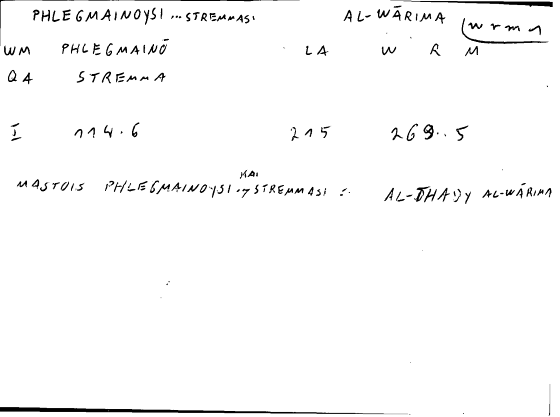 PHLEGMAINOYSI ... STREMMASI AL-WĀRIMA (wrmn
WM PHLEGMAINŌ LA W R M
QA STREMMA
I 114.6 215 269.. 5
MASTOIS PHLEGMAINOYSI KAI STREMMASI :. AL-ṮHADY AL-WĀRIMA